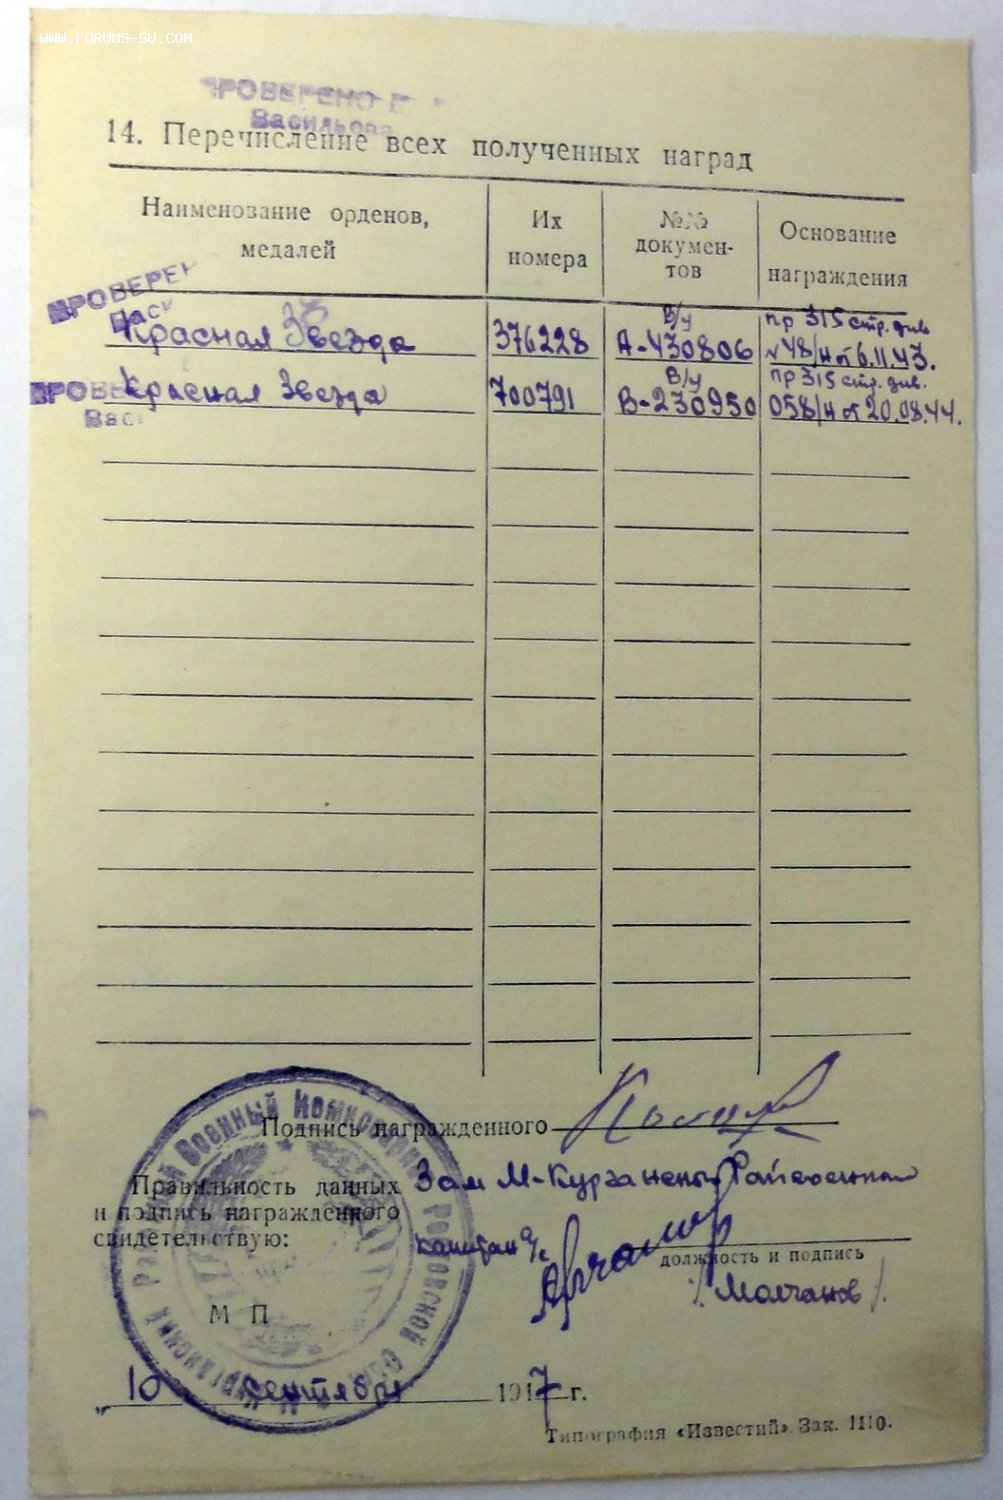 WWW.FORUMS-SU.COM
ПРОВЕРЕНО
Васильева
14. Перечисление всех полученных наград
Наименование орденов, медалей
Их номера
№№ докумен-тов
Основание награждения
ПРОВЕРЕН
Вас
Красная Звезда
376228
В/у А-430806
пр 315 стр. див №48/н от 6.11.43.
ПРОВЕ
Вас
Красная Звезда
700791
В/у В-230950
пр 315 стр. див. 058/н от 20.08.44.
Подпись награжденного
Правильность данных
и подпись награжденного
свидетельствую:
Зам М-Курганского Райвоенкома
капитан а/с
должность и подпись
/Молчанов/
М П
Военный Комиссариат Ростовской
„ 10 сентября 1947 г.
Типография «Известий» Зак. 1110.